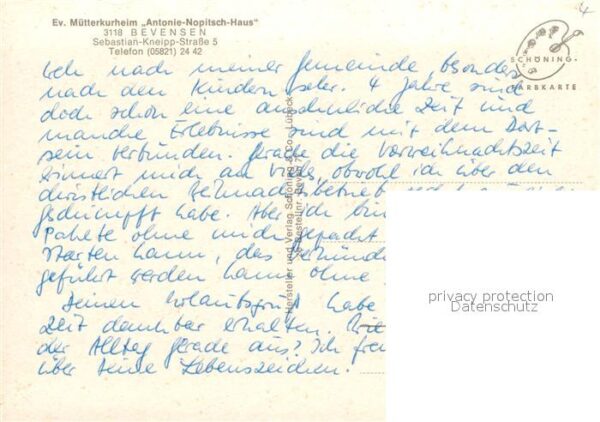 Ev. Mütterkurheim „Antonie-Nopitsch-Haus"
3118 BEVENSEN
Sebastian-Kneipp-Straße 5
Telefon (05821) 24 42
4
SCHÖNING
FARBKARTE
nach meiner Gemeinde besonders
nach den Kindern sehr. 4 Jahre sind
doch schon eine ansehnliche Zeit und
manche Erlebnisse sind mit dem Dort-
sein verbunden. Gerade die Vorweihnachtszeit
erinnert mich an Vieles, obwohl ich über den
christlichen
geschimpft habe. Aber ich bin
Pakete ohne mich gepackt
starten kann, das
geführt werden kann ohne
Deinen Urlaubsgruß habe
Zeit dankbar erhalten.
der Alltag gerade aus? Ich
über Deine Lebenszeichen.
Hersteller und Verlag Schöning & Co., Lübeck
Bestellnr.
privacy protection
Datenschutz